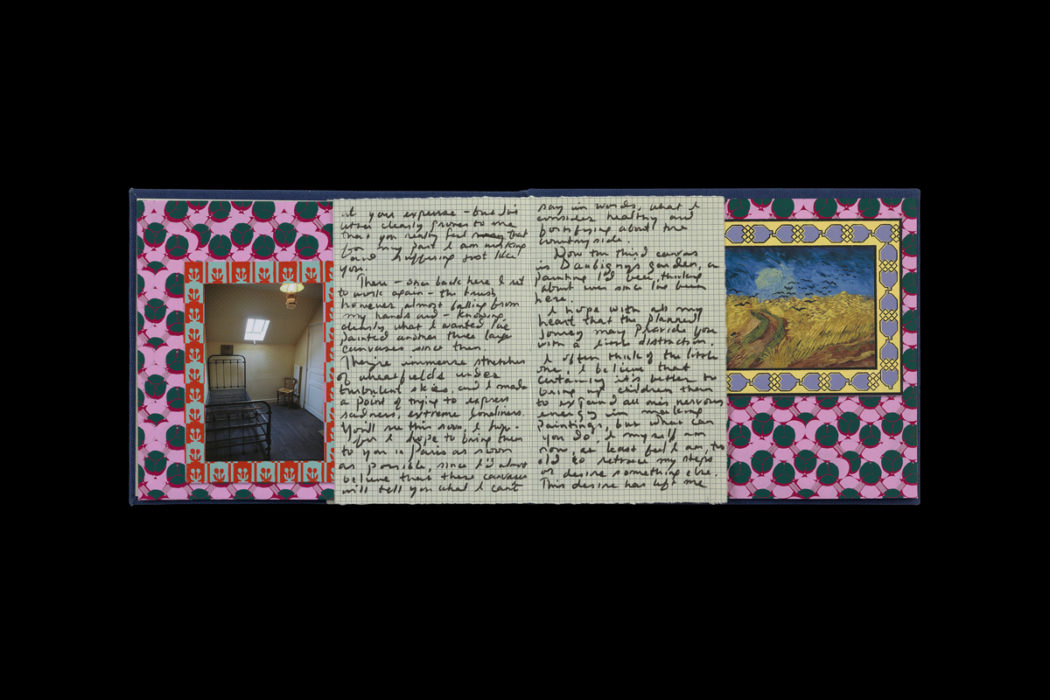 at your expense – but his
letter clearly proves to me
that you really feel that
for my part I am working
and suffering just like
you.
There – once back here I set
to work again – the brush
however almost falling from
my hands and – knowing
clearly what I wanted I've
painted another three large
canvases since then.
They're immense stretches
of wheatfields under
turbulent skies, and I made
a point of trying to express
sadness, extreme loneliness.
You'll see this soon, I hope –
for I hope to bring them
to you in Paris as soon
as possible, since I'd almost
believe that these canvases
will tell you what I can't
say in words, what I
consider healthy and
fortifying about the
countryside.
Now the third canvas
is Daubignys garden, a
painting I'd been thinking
about ever since I've been
here.
I hope with all my
heart that the planned
journey may provide you
with a little distraction.
I often think of the little
one, I believe that
certainly it's better to
bring up children than
to expend all one's nervous
energy in making
paintings, but what can
you do, I myself am
now, at least feel I am, too
old to retrace my steps
or desire something else.
This desire has left me